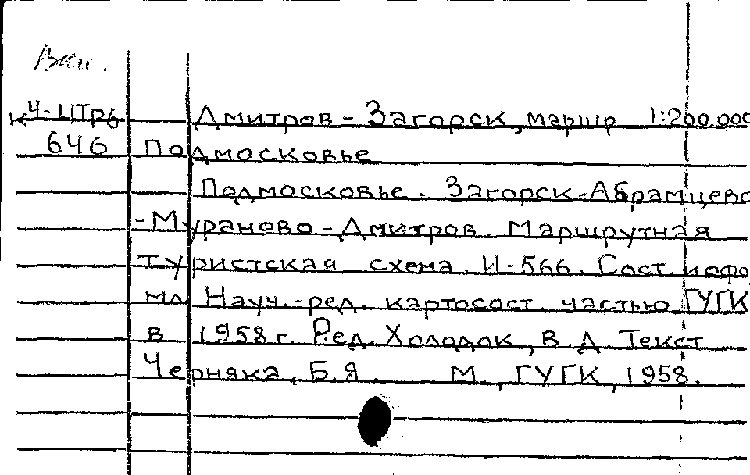 Вки.
К 4-ЦТрб Дмитров - Загорск, маршр 1:200.000
646 Подмосковье
Подмосковье. Загорск-Абрамцево
-Мураново-Дмитров. Маршрутная
туристская схема. И-566. Сост. и офо
мл. Науч.-ред. картосост. частью ГУГК
в 1958 г. Ред. Холодок, В. Д. Текст
Черняка, Б.Я. М., ГУГК, 1958.